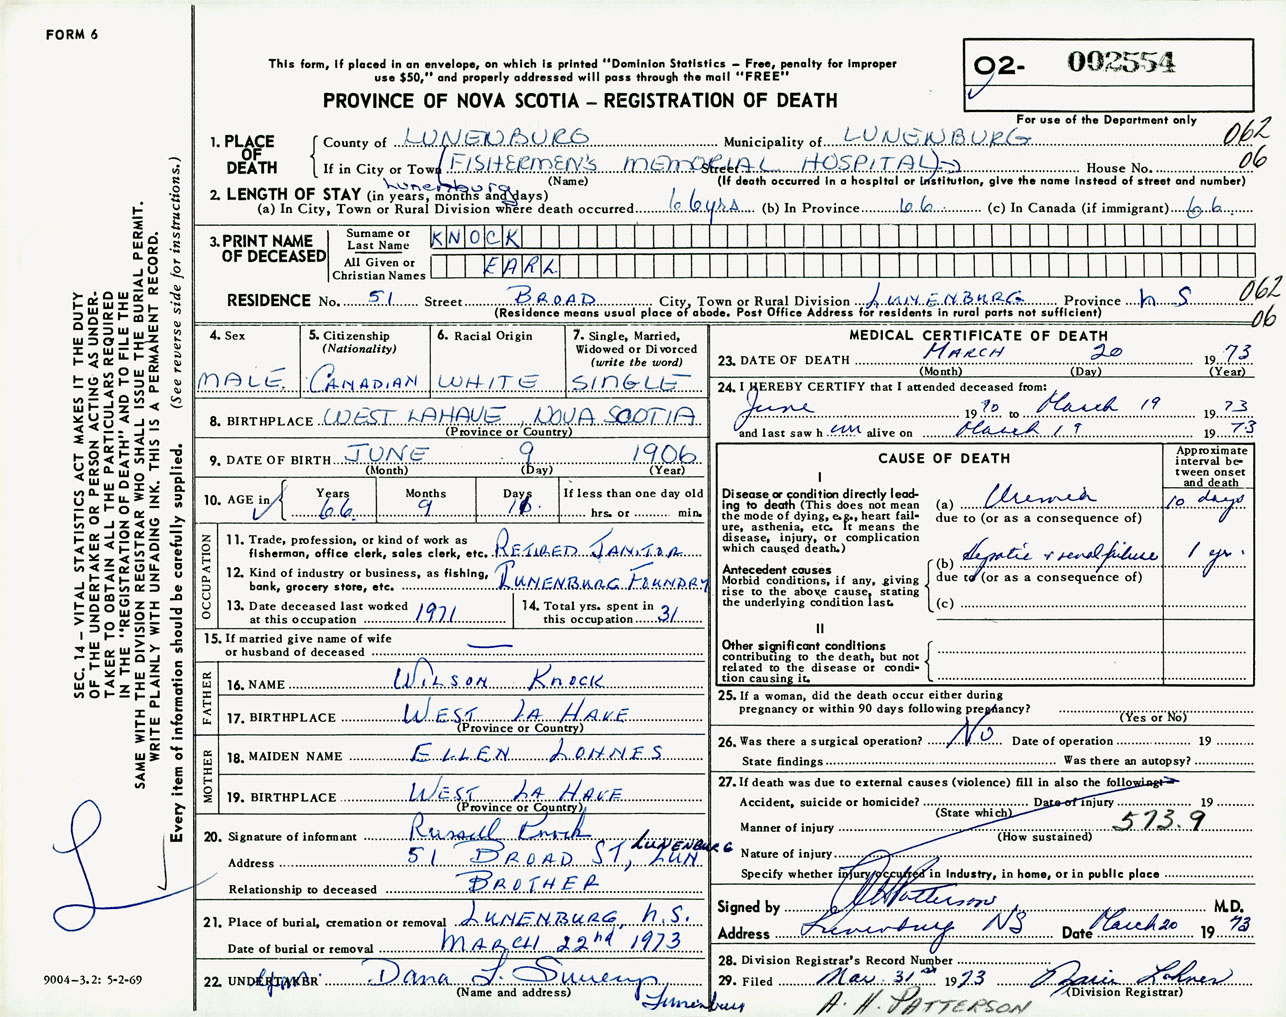 FORM 6
This form, if placed in an envelope, on which is printed "Dominion Statistics – Free, penalty for improper
use $50," and properly addressed will pass through the mail "FREE"
PROVINCE OF NOVA SCOTIA – REGISTRATION OF DEATH
02- 002554
For use of the Department only
062
06
1. PLACE OF DEATH
County of LUNENBURG Municipality of LUNENBURG
If in City or Town (FISHERMEN'S MEMORIAL HOSPITAL) Street House No.
(Name) (If death occurred in a hospital or institution, give the name instead of street and number)
Lunenburg
2. LENGTH OF STAY (in years, months and days)
(a) In City, Town or Rural Division where death occurred 66 yrs (b) In Province 66 (c) In Canada (if immigrant) 66
3. PRINT NAME OF DECEASED
Surname or Last Name KNOCK
All Given or Christian Names EARL
RESIDENCE No. 51 Street BROAD City, Town or Rural Division LUNENBURG Province N S
062
06
(Residence means usual place of abode. Post Office Address for residents in rural parts not sufficient)
4. Sex
MALE
5. Citizenship (Nationality)
CANADIAN
6. Racial Origin
WHITE
7. Single, Married, Widowed or Divorced (write the word)
SINGLE
8. BIRTHPLACE WEST LAHAVE, NOVA SCOTIA
(Province or Country)
9. DATE OF BIRTH JUNE 9 1906
(Month) (Day) (Year)
10. AGE in Years 66 Months 9 Days 11 If less than one day old hrs. or min.
OCCUPATION
11. Trade, profession, or kind of work as fisherman, office clerk, sales clerk, etc. RETIRED JANITOR
12. Kind of industry or business, as fishing, bank, grocery store, etc. LUNENBURG FOUNDRY
13. Date deceased last worked at this occupation 1971
14. Total yrs. spent in this occupation 31
15. If married give name of wife or husband of deceased —
FATHER
16. NAME WILSON KNOCK
17. BIRTHPLACE WEST LA HAVE
(Province or Country)
MOTHER
18. MAIDEN NAME ELLEN LOHNES
19. BIRTHPLACE WEST LA HAVE
(Province or Country)
20. Signature of informant Russell Knock
Address 51 BROAD ST, LUN LUNENBURG
Relationship to deceased BROTHER
21. Place of burial, cremation or removal LUNENBURG, N.S.
Date of burial or removal MARCH 22nd 1973
22. UNDERTAKER Dana L. Sweeny
(Name and address)
Lunenburg
MEDICAL CERTIFICATE OF DEATH
23. DATE OF DEATH MARCH 20 1973
(Month) (Day) (Year)
24. I HEREBY CERTIFY that I attended deceased from:
June 1970 to March 19 1973
and last saw him alive on March 19 1973
CAUSE OF DEATH
Approximate interval between onset and death
I
Disease or condition directly leading to death (This does not mean the mode of dying, e.g., heart failure, asthenia, etc. It means the disease, injury, or complication which caused death.)
(a) Uremia 10 days
due to (or as a consequence of)
Antecedent causes
Morbid conditions, if any, giving rise to the above cause, stating the underlying condition last.
(b) Hepatic & renal failure 1 yr.
due to (or as a consequence of)
(c)
II
Other significant conditions
contributing to the death, but not related to the disease or condition causing it.
25. If a woman, did the death occur either during pregnancy or within 90 days following pregnancy?
(Yes or No)
26. Was there a surgical operation? No Date of operation 19
State findings Was there an autopsy?
27. If death was due to external causes (violence) fill in also the following:
Accident, suicide or homicide? Date of injury 19
(State which)
Manner of injury 573.9
(How sustained)
Nature of injury
Specify whether injury occurred in Industry, in home, or in public place
Signed by Patterson M.D.
Address Lunenburg NS Date March 20 1973
28. Division Registrar's Record Number
29. Filed Mar. 31st 1973
(Division Registrar)
A. H. PATTERSON
SEC. 14 – VITAL STATISTICS ACT MAKES IT THE DUTY
OF THE UNDERTAKER OR PERSON ACTING AS UNDER-
TAKER TO OBTAIN ALL THE PARTICULARS REQUIRED
IN THE "REGISTRATION OF DEATH" AND TO FILE THE
SAME WITH THE DIVISION REGISTRAR WHO SHALL ISSUE THE BURIAL PERMIT.
WRITE PLAINLY WITH UNFADING INK. THIS IS A PERMANENT RECORD.
Every item of information should be carefully supplied. (See reverse side for instructions.)
L
9004–3.2: 5-2-69